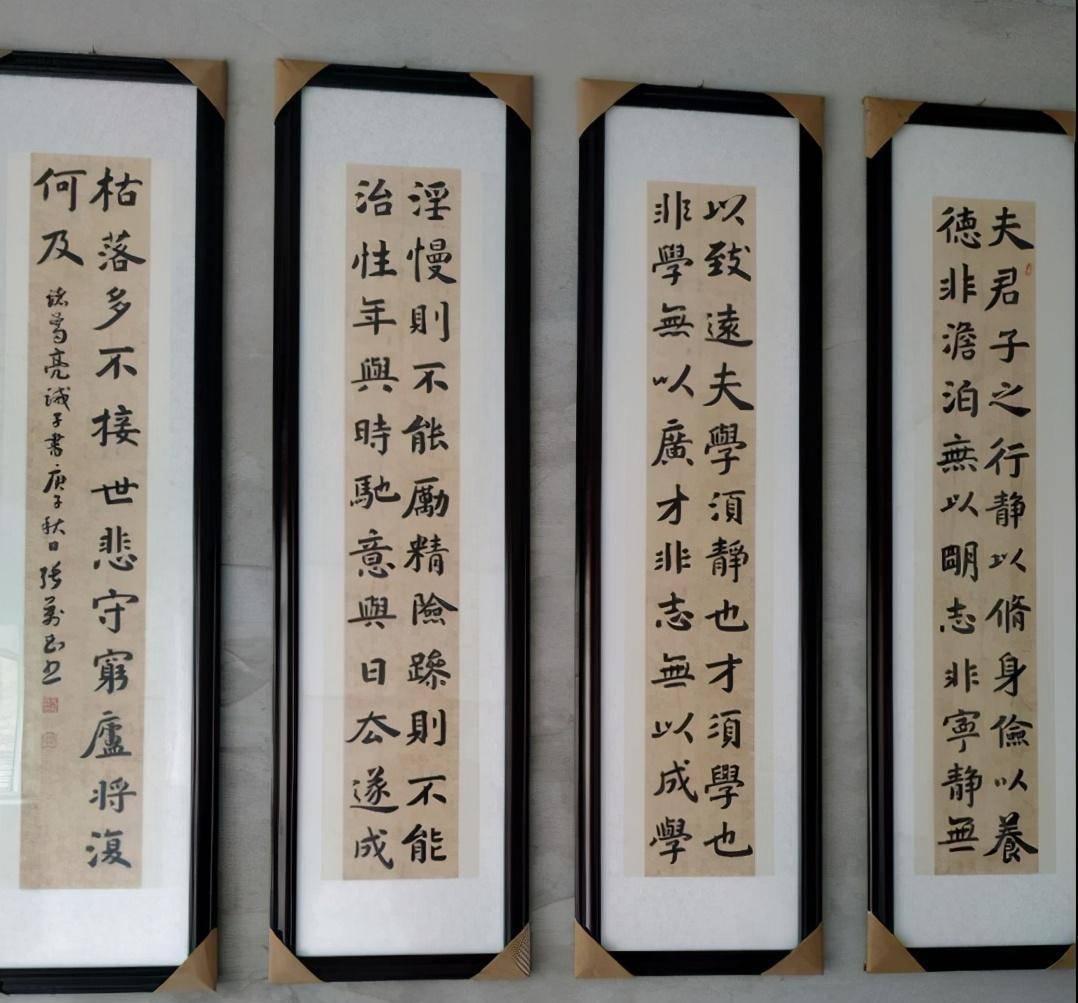 夫君子之行静以脩身儉以養
徳非澹泊無以明志非寧静無
以致遠夫學須静也才須學也
非學無以廣才非志無以成學
淫慢則不能勵精險躁則不能
治性年與時馳意與日去遂成
枯落多不接世悲守窮廬将復
何及
諸葛亮誡子書庚子秋日張萬